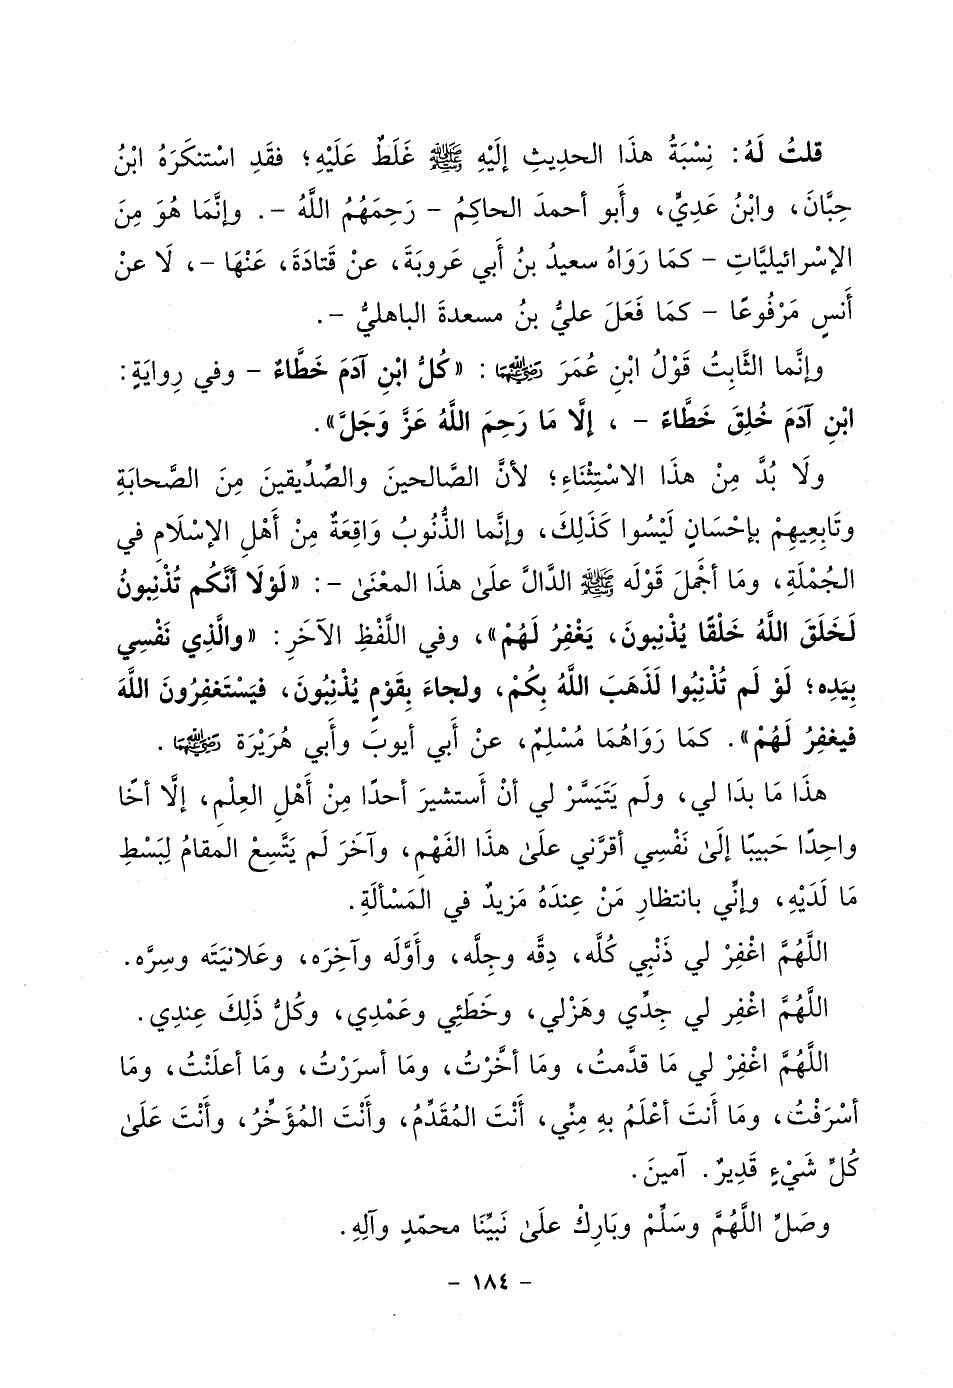 قلتُ لَهُ: نِسْبَةُ هذَا الحديثِ إلَيْهِ ﷺ غَلَطٌ عَلَيْهِ؛ فقَدِ اسْتنكَرَهُ ابْنُ
حِبَّانَ، وابْنُ عَدِيٍّ، وأَبو أحمدَ الحاكِمُ - رَحِمَهُمُ اللَّهُ -. وإنَّمَا هُوَ مِنَ
الإسْرائيليَّاتِ - كمَا رَوَاهُ سعيدُ بنُ أَبي عَروبَةَ، عنْ قَتادَةَ، عَنْهَا -، لَا عنْ
أَنسٍ مَرْفُوعًا - كمَا فَعَلَ عليُّ بنُ مسعدةَ الباهليُّ -.
وإنَّما الثَّابِتُ قَوْلُ ابْنِ عُمَرَ رضي الله عنهما: «كُلُّ ابْنِ آدَمَ خَطَّاءٌ - وفي رِوايَةٍ:
ابْنِ آدَمَ خُلِقَ خَطَّاءً - ، إلَّا مَا رَحِمَ اللَّهُ عَزَّ وَجَلَّ».
ولَا بُدَّ مِنْ هذَا الاسْتِثْنَاءِ؛ لأنَّ الصَّالحينَ والصِّدِّيقينَ مِنَ الصَّحابَةِ
وتَابِعِيهِمْ بإحْسَانٍ لَيْسُوا كَذَلِكَ، وإنَّما الذُّنُوبُ وَاقِعَةٌ مِنْ أَهْلِ الإسْلَامِ في
الجُمْلَةِ، ومَا أجْمَلَ قَوْلَه ﷺ الدَّالَّ علَىٰ هذَا المعْنَىٰ -: «لَوْلَا أنَّكُم تُذْنِبونُ
لَخَلَقَ اللَّهُ خَلْقًا يُذْنِبونَ، يَغْفِرُ لَهُمْ»، وفي اللَّفْظِ الآخَرِ: «والَّذِي نَفْسِي
بِيَدِه؛ لَوْ لَم تُذْنِبُوا لَذَهَبَ اللَّهُ بِكُمْ، ولجاءَ بِقَوْمٍ يُذْنِبُونَ، فيَسْتَغفِرُونَ اللَّهَ
فيغفِرُ لَهُمْ». كمَا رَوَاهُمَا مُسْلِمٌ، عنْ أَبي أيوبَ وأَبي هُرَيْرَةَ رضي الله عنهما.
هذَا مَا بدَا لي، ولَم يَتَيَسَّرْ لي أنْ أَستشيرَ أحدًا مِنْ أَهْلِ العِلْمِ، إلَّا أخًا
واحِدًا حَبيبًا إلَىٰ نَفْسِي أقرَّني علَىٰ هذَا الفَهْمِ، وآخَرَ لَم يَتَّسِعْ المقامُ لِبَسْطِ
مَا لَدَيْهِ، وإنِّي بانتظارِ مَنْ عِندَهُ مَزيدٌ في المَسْألَةِ.
اللَّهُمَّ اغْفِرْ لي ذَنْبِي كُلَّه، دِقَّه وجِلَّه، وأَوَّلَه وآخِرَه، وعَلانيَتَه وسِرَّه.
اللَّهُمَّ اغْفِر لي جِدِّي وهَزْلي، وخَطَئِي وعَمْدِي، وكُلُّ ذَلِكَ عِندِي.
اللَّهُمَّ اغْفِرْ لي مَا قدَّمتُ، ومَا أخَّرْتُ، ومَا أسرَرْتُ، ومَا أعلَنْتُ، ومَا
أسْرَفْتُ، ومَا أَنتَ أعْلَمُ بهِ مِنِّي، أَنْتَ المُقَدِّمُ، وأَنْتَ المُؤَخِّرُ، وأَنْتَ عَلَىٰ
كُلِّ شَيْءٍ قَدِيرٌ. آمينَ.
وصَلِّ اللَّهُمَّ وسَلِّمْ وبَارِكْ علَىٰ نَبِيِّنَا محمَّدٍ وآلِهِ.
- ١٨٤ -